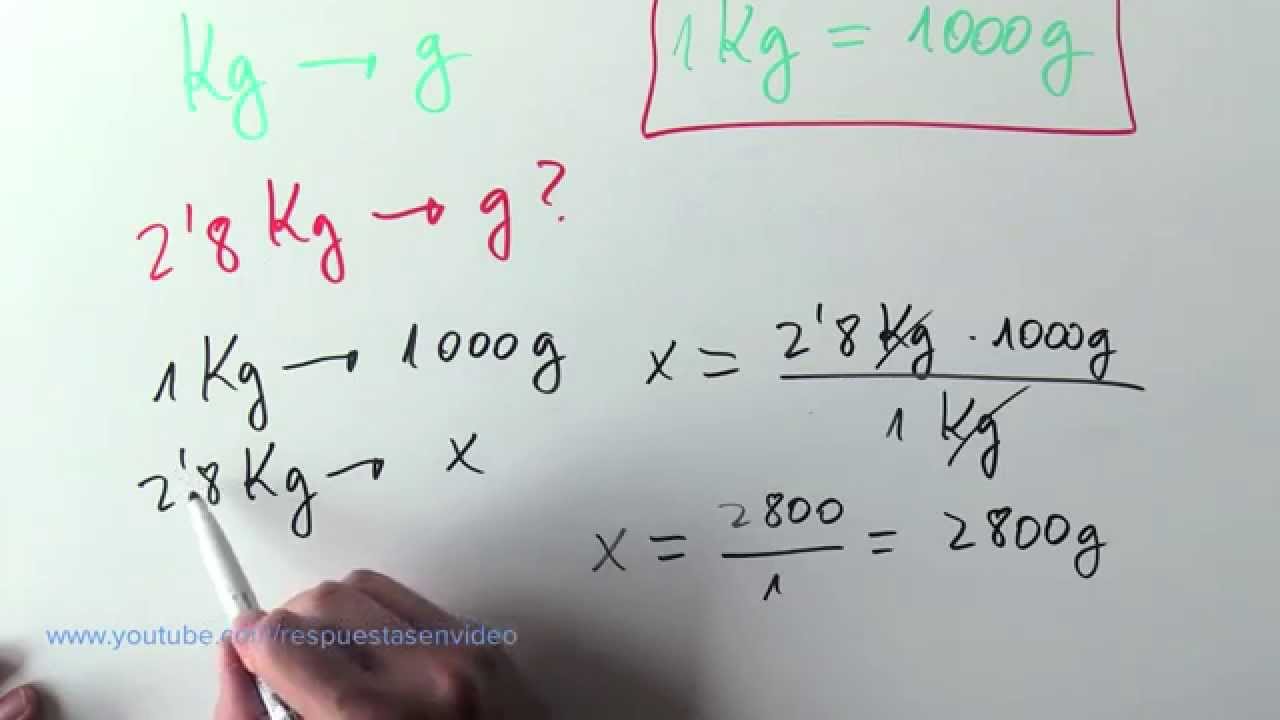 Kg → g
1 Kg = 1000g
2'8 Kg → g?
1 Kg → 1000g
2'8 Kg → x
x = 2'8 Kg · 1000g
1 Kg
x = 2800 = 2800g
1
www.youtube.com/respuestasenvideo